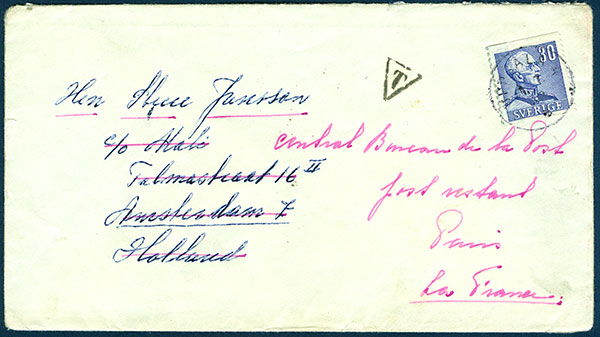 30
SVERIGE
T
Herr Sture Jansson
c/o Mak
Talmastraat 16 II
Amsterdam Z
Holland
Central Bureau de la Post
post restant
Paris
La France.